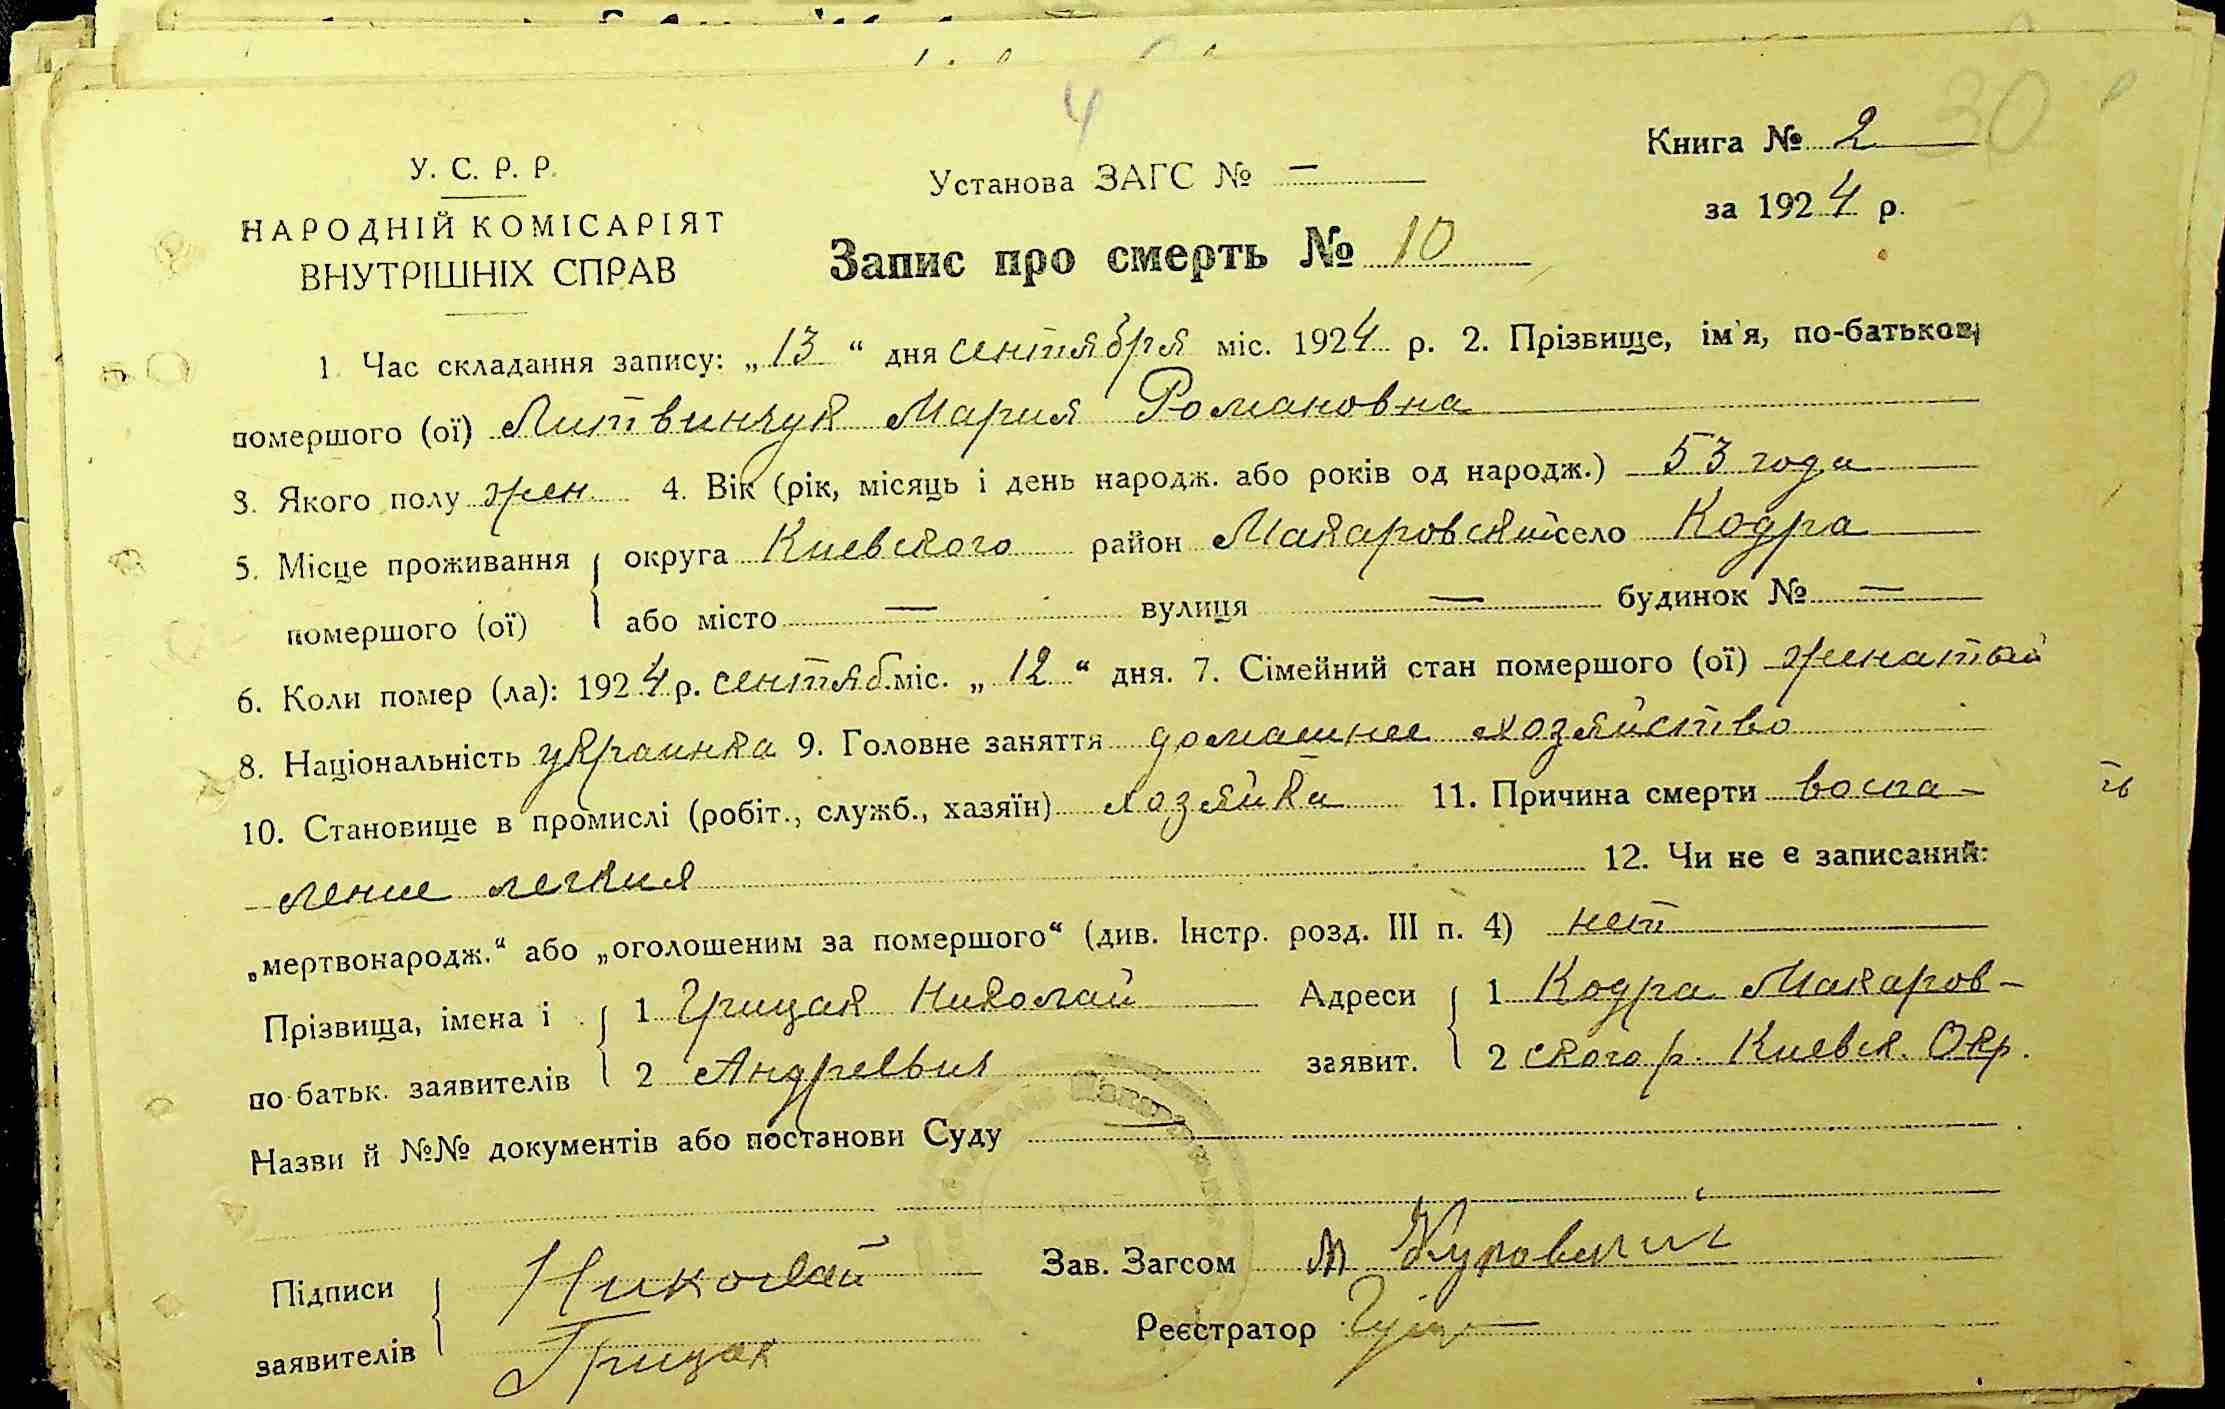 4
30
Книга № 2
У. С. Р. Р.
Установа ЗАГС № —
за 1924 р.
НАРОДНІЙ КОМІСАРІЯТ
ВНУТРІШНІХ СПРАВ
Запис про смерть № 10
1. Час складання запису: „13“ дня сентября міс. 1924 р. 2. Прізвище, ім'я, по-батькові
помершого (ої) Литвинчук Мария Романовна
3. Якого полу жен. 4. Вік (рік, місяць і день народж. або років од народж.) 53 года
5. Місце проживання округа Киевского район Макаровский село Кодра
помершого (ої) або місто — вулиця — будинок № —
6. Коли помер (ла): 1924 р. сентяб. міс. „12“ дня. 7. Сімейний стан помершого (ої) женатый
8. Національність украинка 9. Головне заняття домашнее хозяйство
10. Становище в промислі (робіт., служб., хазяїн) хозяйка 11. Причина смерти воспа-
ление легкия 12. Чи не є записаний:
„мертвонародж.“ або „оголошеним за помершого“ (див. Інстр. розд. III п. 4) нет
Прізвища, імена і 1 Грицак Николай Адреси 1 Кодра Макаров-
по батьк. заявителів 2 Андреевич заявит. 2 ского р. Киевск. Окр.
Назви й №№ документів або постанови Суду —
Підписи Николай Зав. Загсом М
заявителів Грицак Реєстратор